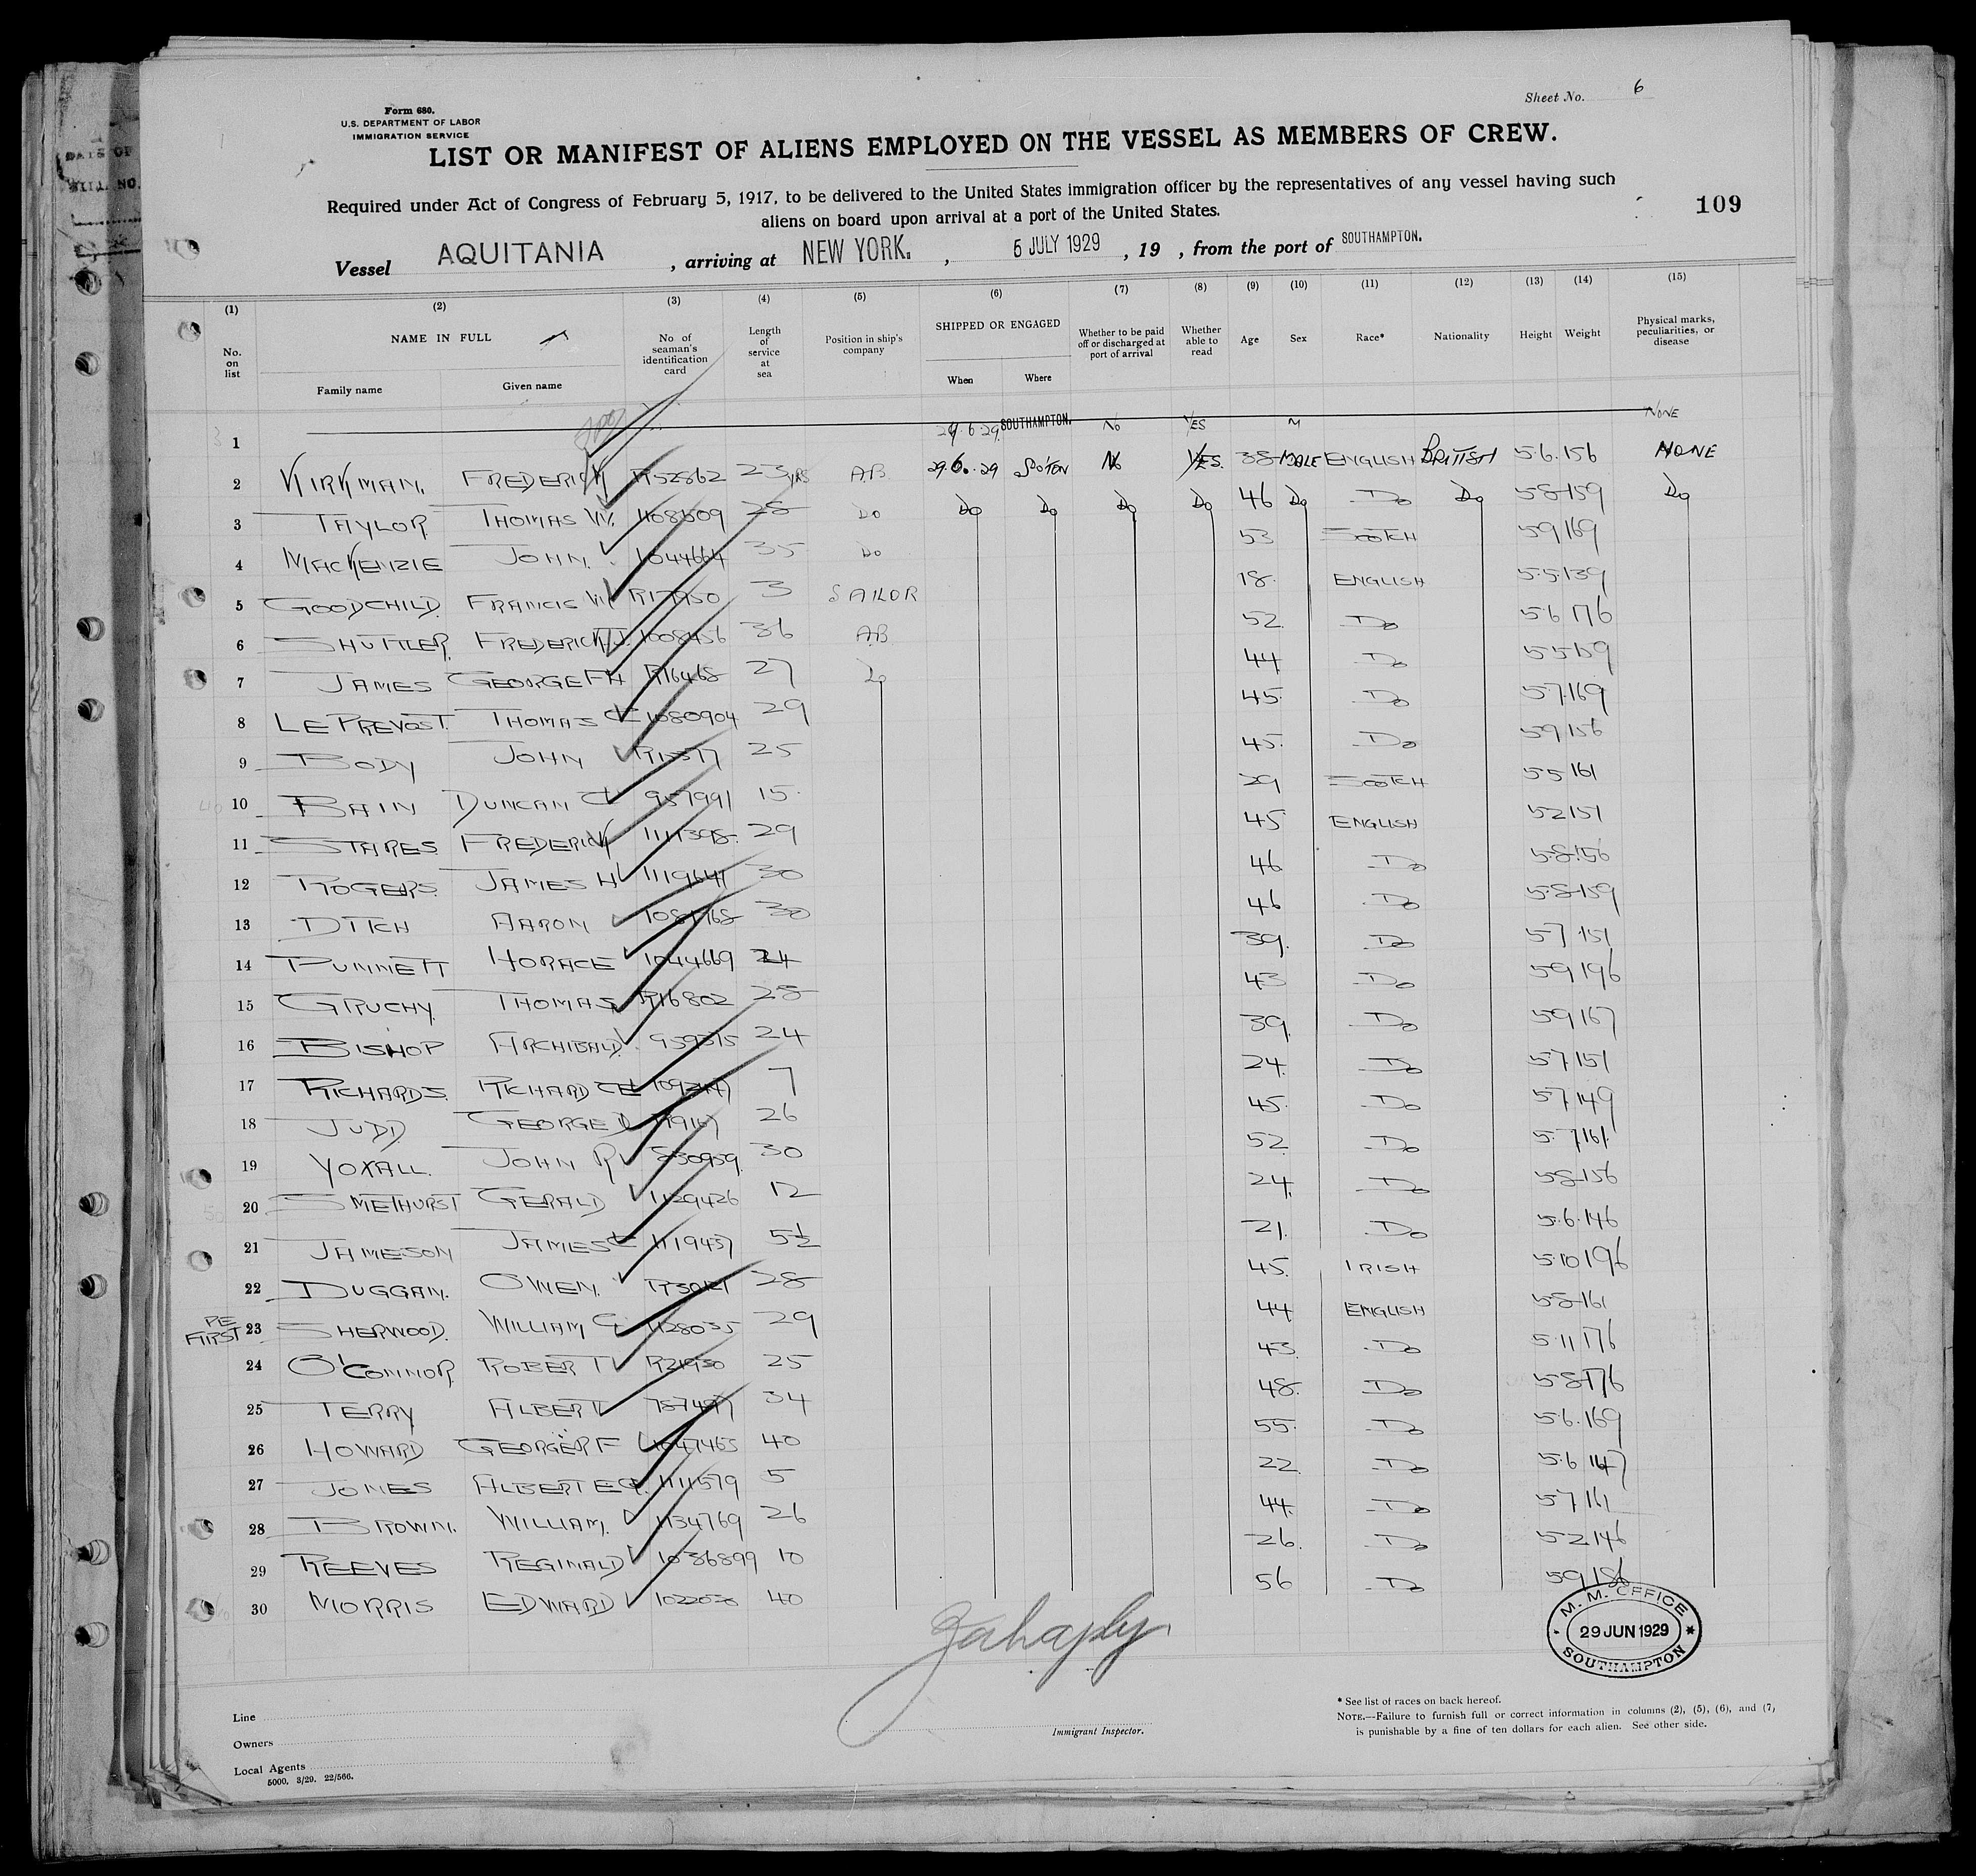 Sheet No. 6
Form 680.
U.S. DEPARTMENT OF LABOR
IMMIGRATION SERVICE
LIST OR MANIFEST OF ALIENS EMPLOYED ON THE VESSEL AS MEMBERS OF CREW.
Required under Act of Congress of February 5, 1917, to be delivered to the United States immigration officer by the representatives of any vessel having such
aliens on board upon arrival at a port of the United States.
109
Vessel AQUITANIA , arriving at NEW YORK. , 5 JULY 1929 , 19 , from the port of SOUTHAMPTON.
(1) (2) (3) (4) (5) (6) (7) (8) (9) (10) (11) (12) (13) (14) (15)
No. on list NAME IN FULL No of seaman's identification card Length of service at sea Position in ship's company SHIPPED OR ENGAGED Whether to be paid off or discharged at port of arrival Whether able to read Age Sex Race* Nationality Height Weight Physical marks, peculiarities, or disease
Family name Given name When Where
1 29.6.29 SOUTHAMPTON. No YES M NONE
2 KIRKMAN. FREDERICK R52862 23 YRS AB 29.6.29 SO'TON No YES. 38 MALE ENGLISH BRITISH 5.6. 156 NONE
3 TAYLOR THOMAS W. 28 Do Do Do Do Do 46 Do Do Do 5.8 159 Do
4 MACKENZIE JOHN. 1044664 35 Do 53 SCOTCH 5.9 169
5 GOODCHILD. FRANCIS W 3 SAILOR 18. ENGLISH 5.5. 139
6 SHUTTLER. FREDERICK J. 1008456 36 AB 52. Do 5.6 176
7 JAMES GEORGE F H R16468 27 Do 44 Do 5.5 159
8 LE PREVOST. THOMAS C 1080904 29 45. Do 5.7. 169
9 BODY JOHN 25 45. Do 5.9 156
10 BAIN DUNCAN C 957991 15. 29 SCOTCH 5.5 161
11 STARES. FREDERICK 1111398. 29 45 ENGLISH 5.2 151
12 ROGERS. JAMES H 1119641 30 46 Do 5.8. 156
13 DITCH AARON 30 46 Do 5.8 159
14 PUNNETT HORACE 1044669 24 39. Do 5.7 151
15 GRUCHY. THOMAS R16802 28 43 Do 5.9 196
16 BISHOP ARCHIBALD. 959375 24 39. Do 5.9 167
17 RICHARDS. RICHARD C E 7 24. Do 5.7 151
18 JUDD GEORGE 26 45. Do 5.7 149
19 YOXALL. JOHN R 850959. 30 52 Do 5.7 161.
20 SMETHURST GERALD 1129426 12 24. Do 5.8 156
21 JAMESON JAMES 1119437 5½ 21. Do 5.6. 146
22 DUGGAN. OWEN. 28 45. IRISH 5.10 196
PE FIRST 23 SHERWOOD. WILLIAM G 1128035 29 44 ENGLISH 5.8 161
24 O'CONNOR ROBERT 25 43. Do 5.11 176
25 TERRY ALBERT 787497 34 48. Do 5.8 176
26 HOWARD GEORGE R F 1047465 40 55. Do 5.6. 169
27 JONES ALBERT E G. 1111579 5 22. Do 5.6 147
28 BROWN. WILLIAM. 1134769 26 44. Do 5.7 161
29 REEVES REGINALD 1036899 10 26. Do 5.2 146
30 MORRIS EDWARD 40 56 Do 5.9 186
M. M. OFFICE
29 JUN 1929
SOUTHAMPTON
Line
Owners
Local Agents
5000, 3/29. 22/566.
Immigrant Inspector.
* See list of races on back hereof.
NOTE.—Failure to furnish full or correct information in columns (2), (5), (6), and (7,
is punishable by a fine of ten dollars for each alien. See other side.